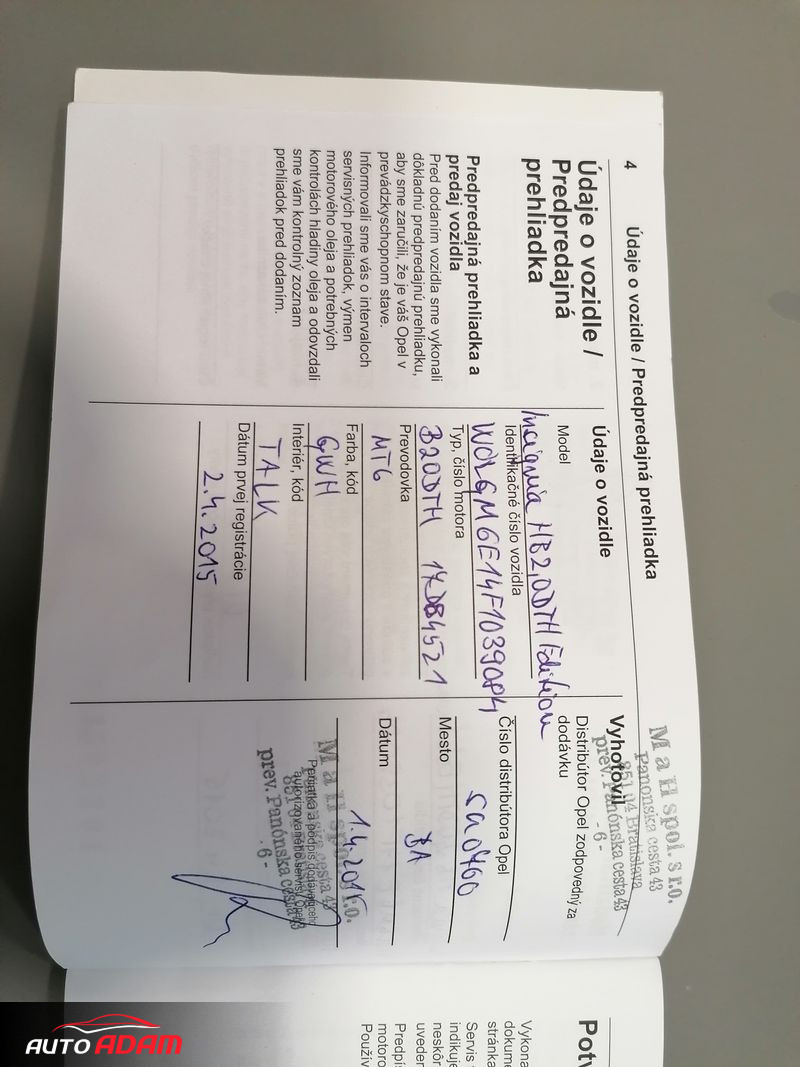 4 Údaje o vozidle / Predpredajná prehliadka
Údaje o vozidle /
Predpredajná
prehliadka
Predpredajná prehliadka a
predaj vozidla
Pred dodaním vozidla sme vykonali
dôkladnú predpredajnú prehliadku,
aby sme zaručili, že je váš Opel v
prevádzkyschopnom stave.
Informovali sme vás o intervaloch
servisných prehliadok, výmen
motorového oleja a potrebných
kontrolách hladiny oleja a odovzdali
sme vám kontrolný zoznam
prehliadok pred dodaním.
Údaje o vozidle
Model
Insignia HB 2,0DTH Edition
Identifikačné číslo vozidla
Typ, číslo motora
B20DTH
Prevodovka
MT6
Farba, kód
GWH
Interiér, kód
TALK
Dátum prvej registrácie
2.4.2015
MaH spol. s r.o.
Panónska cesta 43
851 04 Bratislava
prev. Panónska cesta 43
-6-
Vyhotovil
Distribútor Opel zodpovedný za
dodávku
Číslo distribútora Opel
Mesto
BA
Dátum
1.4.2015
Pečiatka a podpis dodávajúceho
autorizovaného servisu Opel
MaH spol. s r.o.
prev. Panónska cesta 43
-6-
Potv
Vykona
dokume
stránka
Servis
indikuje
neskôr
uveden
Predpí
motoro
Použív
AUTO ADAM